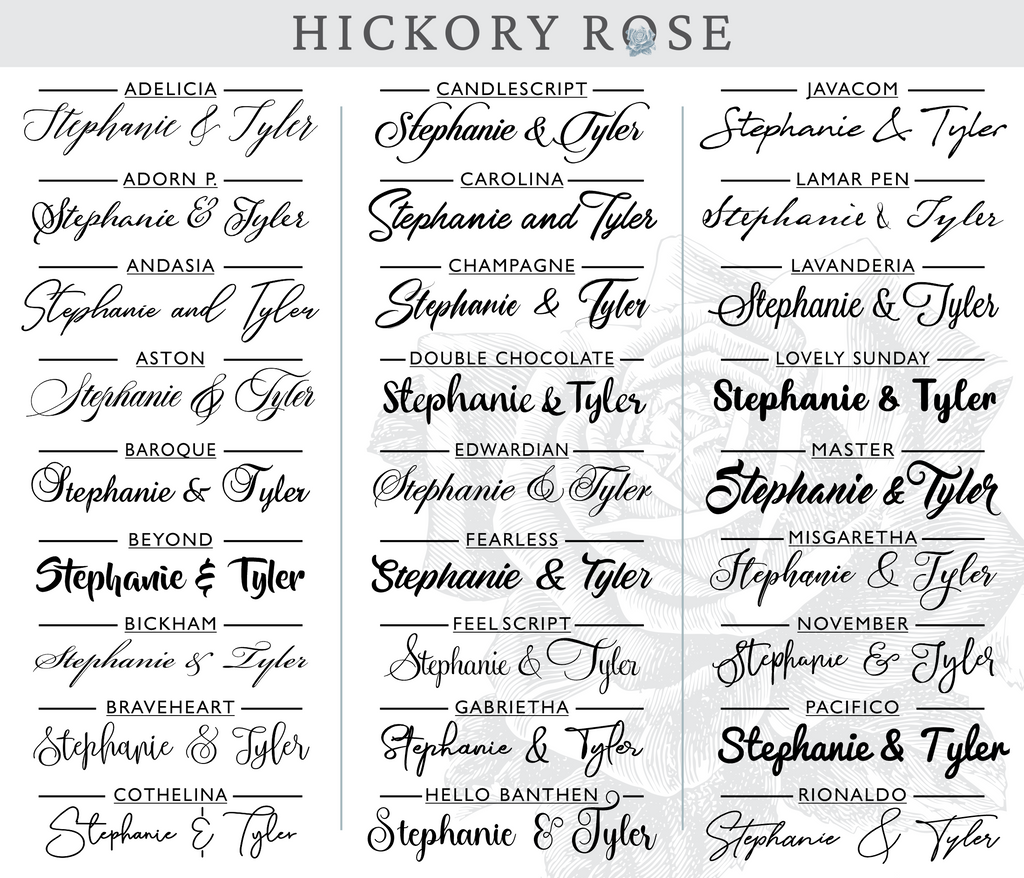 HICKORY ROSE
ADELICIA
Stephanie & Tyler
ADORN P.
Stephanie & Tyler
ANDASIA
Stephanie and Tyler
ASTON
Stephanie & Tyler
BAROQUE
Stephanie & Tyler
BEYOND
Stephanie & Tyler
BICKHAM
Stephanie & Tyler
BRAVEHEART
Stephanie & Tyler
COTHELINA
Stephanie & Tyler
CANDLESCRIPT
Stephanie & Tyler
CAROLINA
Stephanie and Tyler
CHAMPAGNE
Stephanie & Tyler
DOUBLE CHOCOLATE
Stephanie & Tyler
EDWARDIAN
Stephanie & Tyler
FEARLESS
Stephanie & Tyler
FEELSCRIPT
Stephanie & Tyler
GABRIETHA
Stephanie & Tyler
HELLO BANTHEN
Stephanie & Tyler
JAVACOM
Stephanie & Tyler
LAMAR PEN
Stephanie & Tyler
LAVANDERIA
Stephanie & Tyler
LOVELY SUNDAY
Stephanie & Tyler
MASTER
Stephanie & Tyler
MISGARETHA
Stephanie & Tyler
NOVEMBER
Stephanie & Tyler
PACIFICO
Stephanie & Tyler
RIONALDO
Stephanie & Tyler